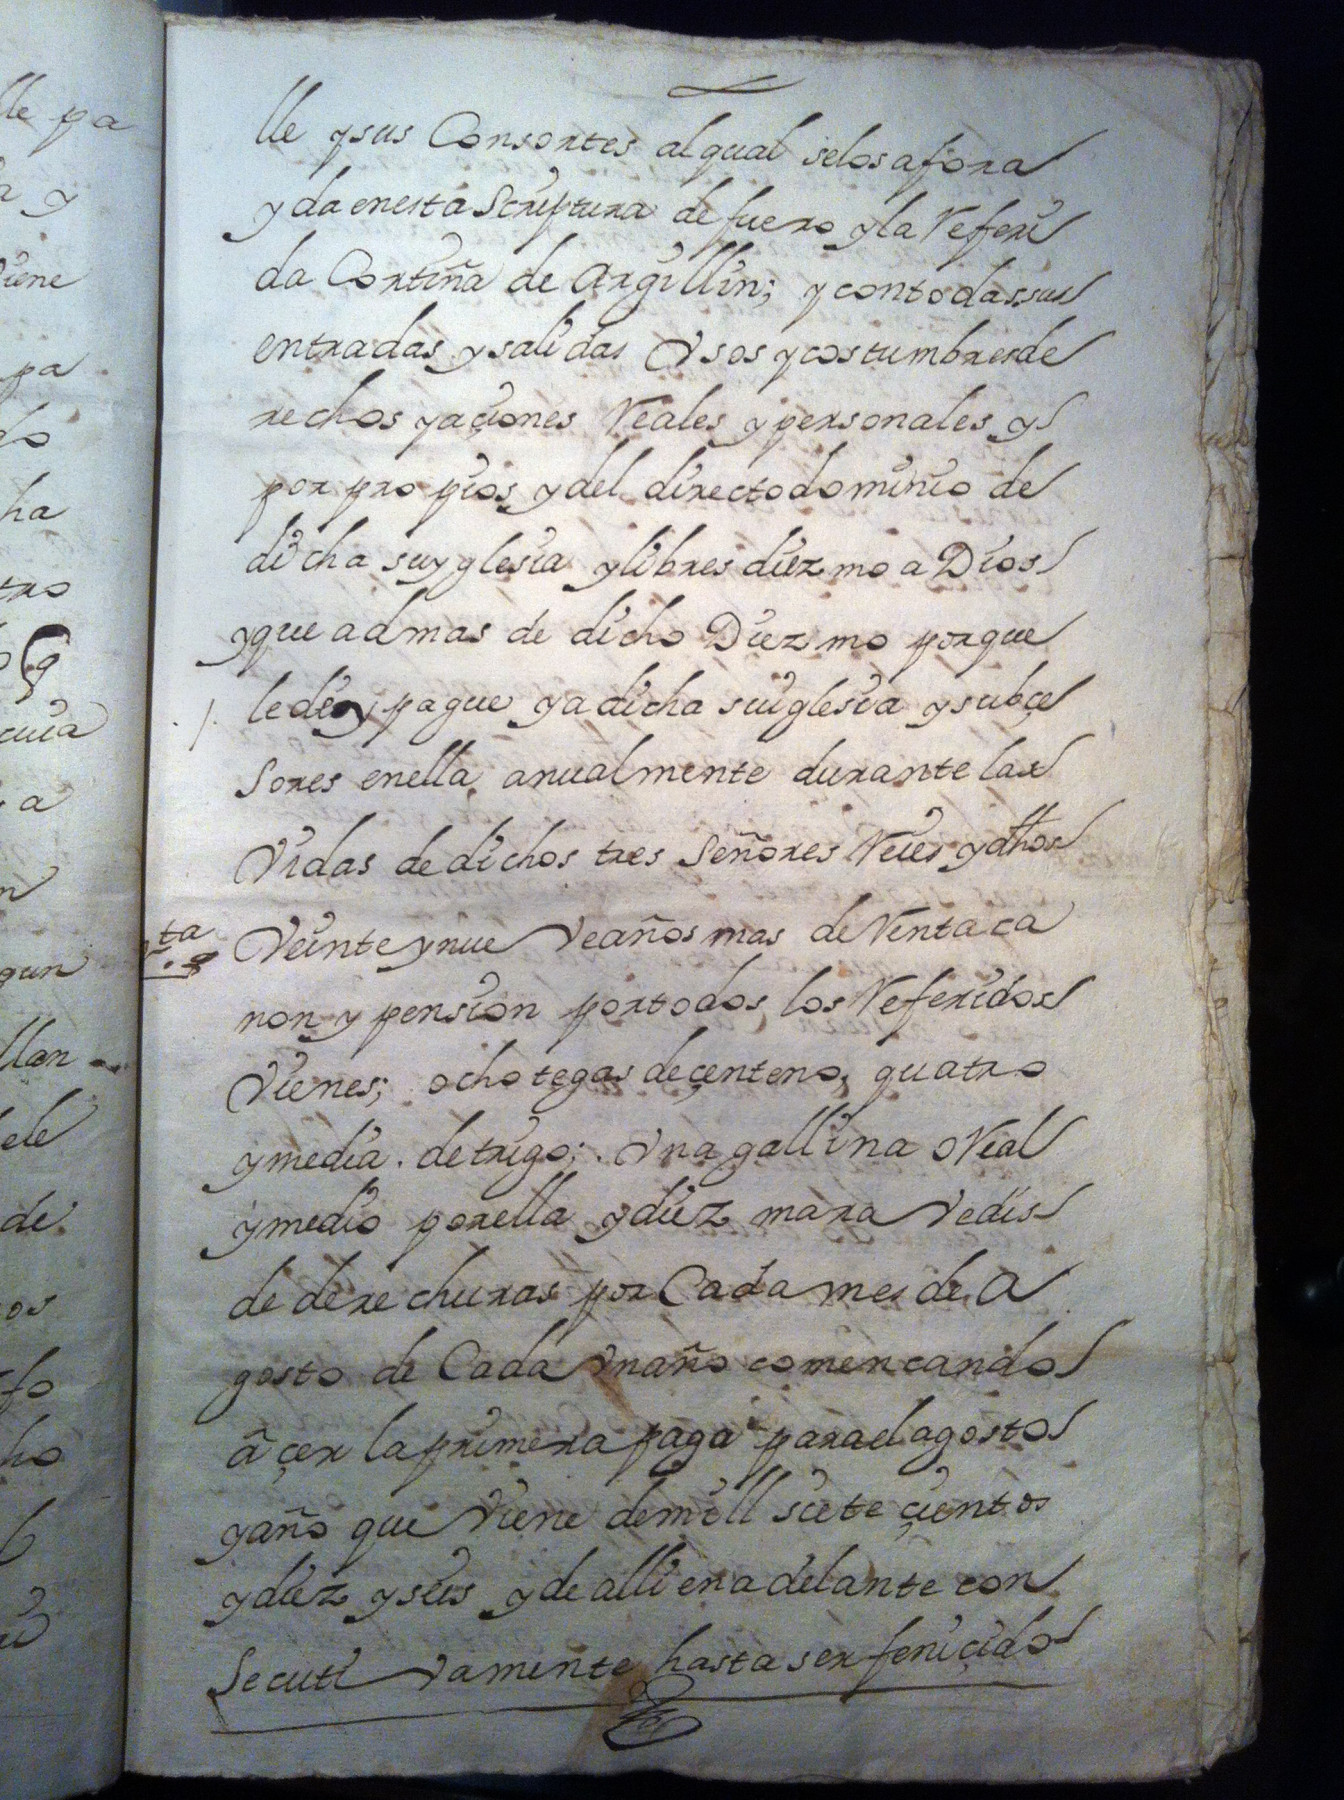 lle y sus Consortes al qual se los afora
y da en esta Scriptura de fuero y la Referi
da Cortiña de Argillin; y con todas sus
entradas y salidas Vsos y costumbres de
rechos y açiones Reales y personales y
por propios y del directo dominio de
dicha su yglesia y libres diezmo a Dios
y que admas de dicho Diezmo porque
le de y pague y a dicha su iglesia y subçe
sores en ella anualmente durante las
Vidas de dichos tres Señores Reies y dhos
Veinte y nueve años mas de Renta ca
non y pension por todos los Referidos
Vienes; ocho tegas de çenteno, quatro
y media . de trigo; . Vna gallina o Real
y medio por ella y diez maravedis
de derechuras por Cada mes de A
gosto de Cada Vn año comencando
a açer la primera paga para el agosto
y año que Viene de mill siete çientos
y diez y seis y de alli en adelante con
secutivamente hasta ser feniçido